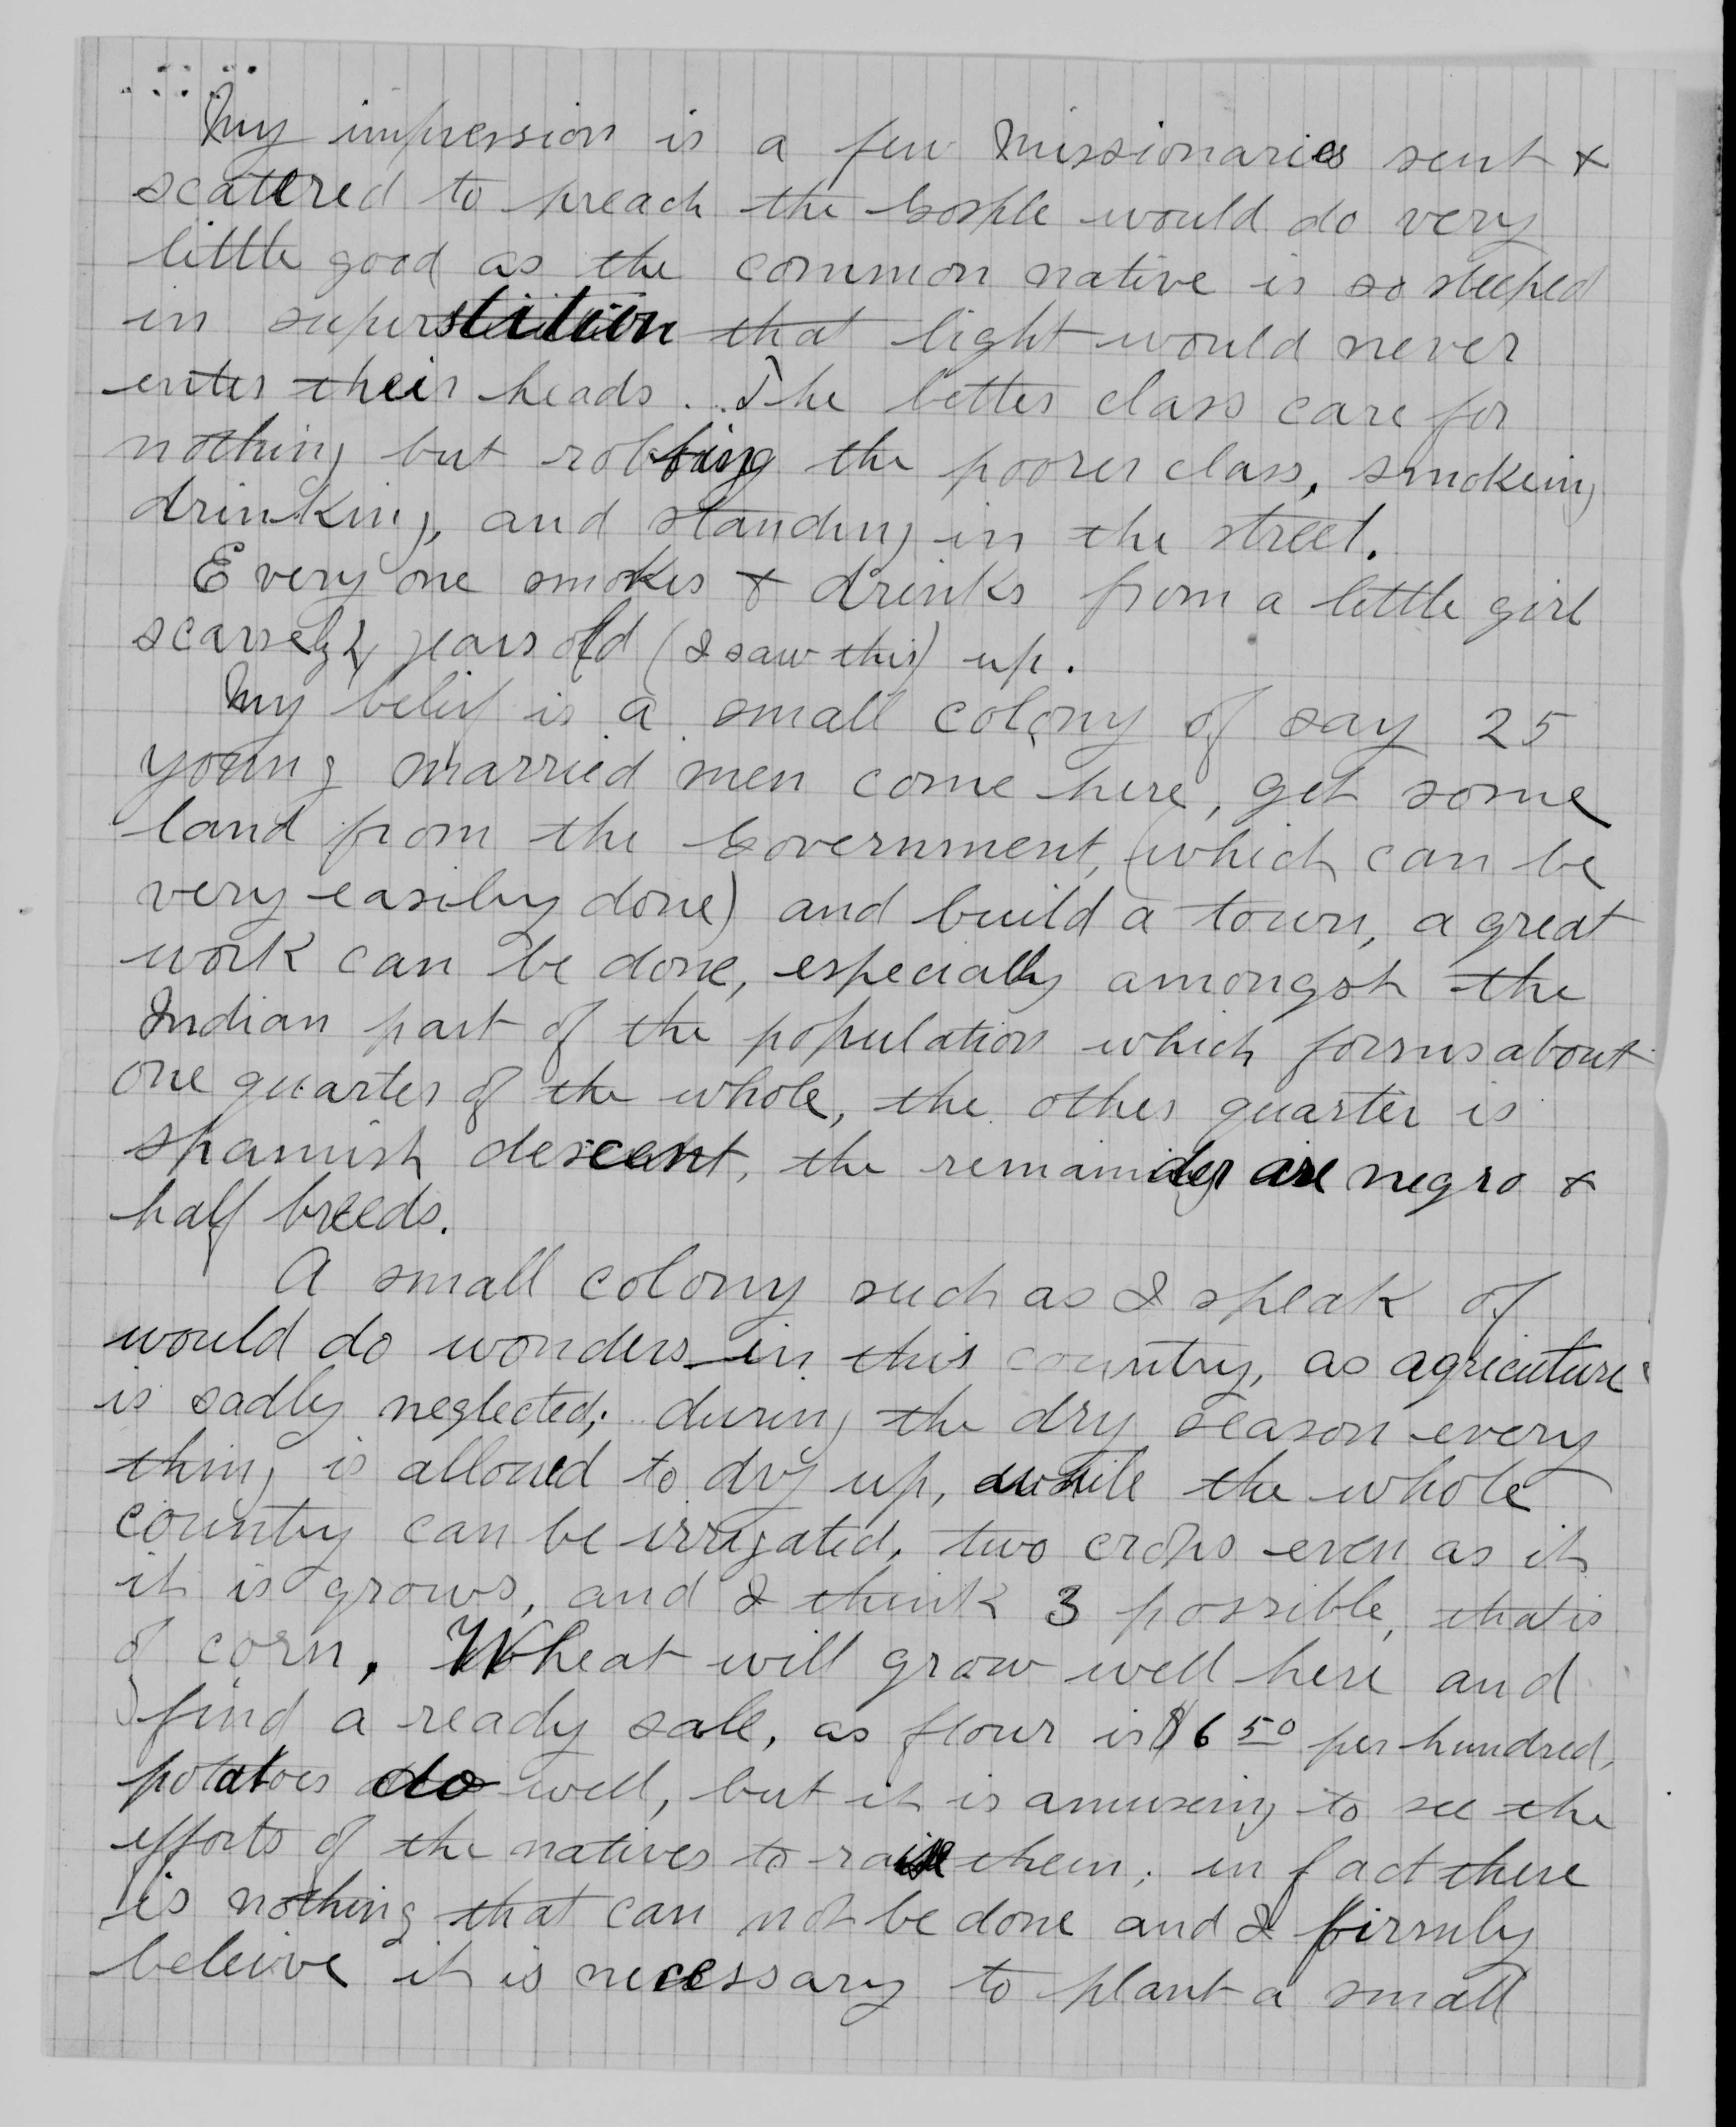 My impression is a few Missionaries sent &
scattered to preach the Gosple would do very
little good as the common native is so steeped
in superstition that light would never
enter their heads. The better class care for
nothing but robbing the poorer class, smokeing
drinking, and standing in the street.
Every one smokes & drinks from a little girl
scarsely years old (I saw this) up.
My belief is a small colony of say 25
young married men come here, get some
land from the Government, (which can be
very easily done) and build a town, a great
work can be done, especially amongst the
Indian part of the population which forms about
one quarter of the whole, the other quarter is
spanish descent, the remainder are negro &
half breeds.
A small colony such as I speak of
would do wonders in this country, as agricuture
is sadly neglected; during the dry season every
thing is allowed to dry up, while the whole
country can be irrigated, two crops even as it
it is grows, and I think 3 possible, that is
of corn. Wheat will grow well here and
find a ready sale, as flour is $6 50 per hundred,
potatoes do well, but it is amuseing to see the
efforts of the natives to raise them; in fact there
is nothing that can not be done and I firmly
beleive it is necessary to plant a small